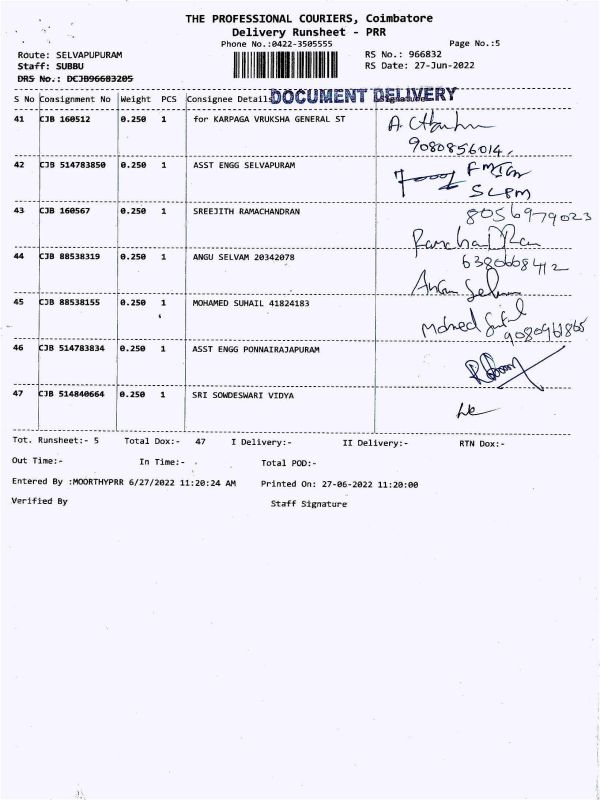 THE PROFESSIONAL COURIERS, Coimbatore
Delivery Runsheet - PRR
Phone No.:0422-3505555
Page No.:5
Route: SELVAPUPURAM
RS No.: 966832
Staff: SUBBU
RS Date: 27-Jun-2022
DRS No.: DCJB96683205
DOCUMENT DELIVERY
S No Consignment No Weight PCS Consignee Details Signature
41 CJB 160512 0.250 1 for KARPAGA VRUKSHA GENERAL ST
9080856014,
42 CJB 514783850 0.250 1 ASST ENGG SELVAPURAM
43 CJB 160567 0.250 1 SREEJITH RAMACHANDRAN
8056979023
44 CJB 88538319 0.250 1 ANGU SELVAM 20342078
6380668412
45 CJB 88538155 0.250 1 MOHAMED SUHAIL 41824183
9080961865
46 CJB 514783834 0.250 1 ASST ENGG PONNAIRAJAPURAM
47 CJB 514840664 0.250 1 SRI SOWDESWARI VIDYA
Tot. Runsheet:- 5 Total Dox:- 47 I Delivery:- II Delivery:- RTN Dox:-
Out Time:- In Time:- Total POD:-
Entered By :MOORTHYPRR 6/27/2022 11:20:24 AM Printed On: 27-06-2022 11:20:00
Verified By Staff Signature